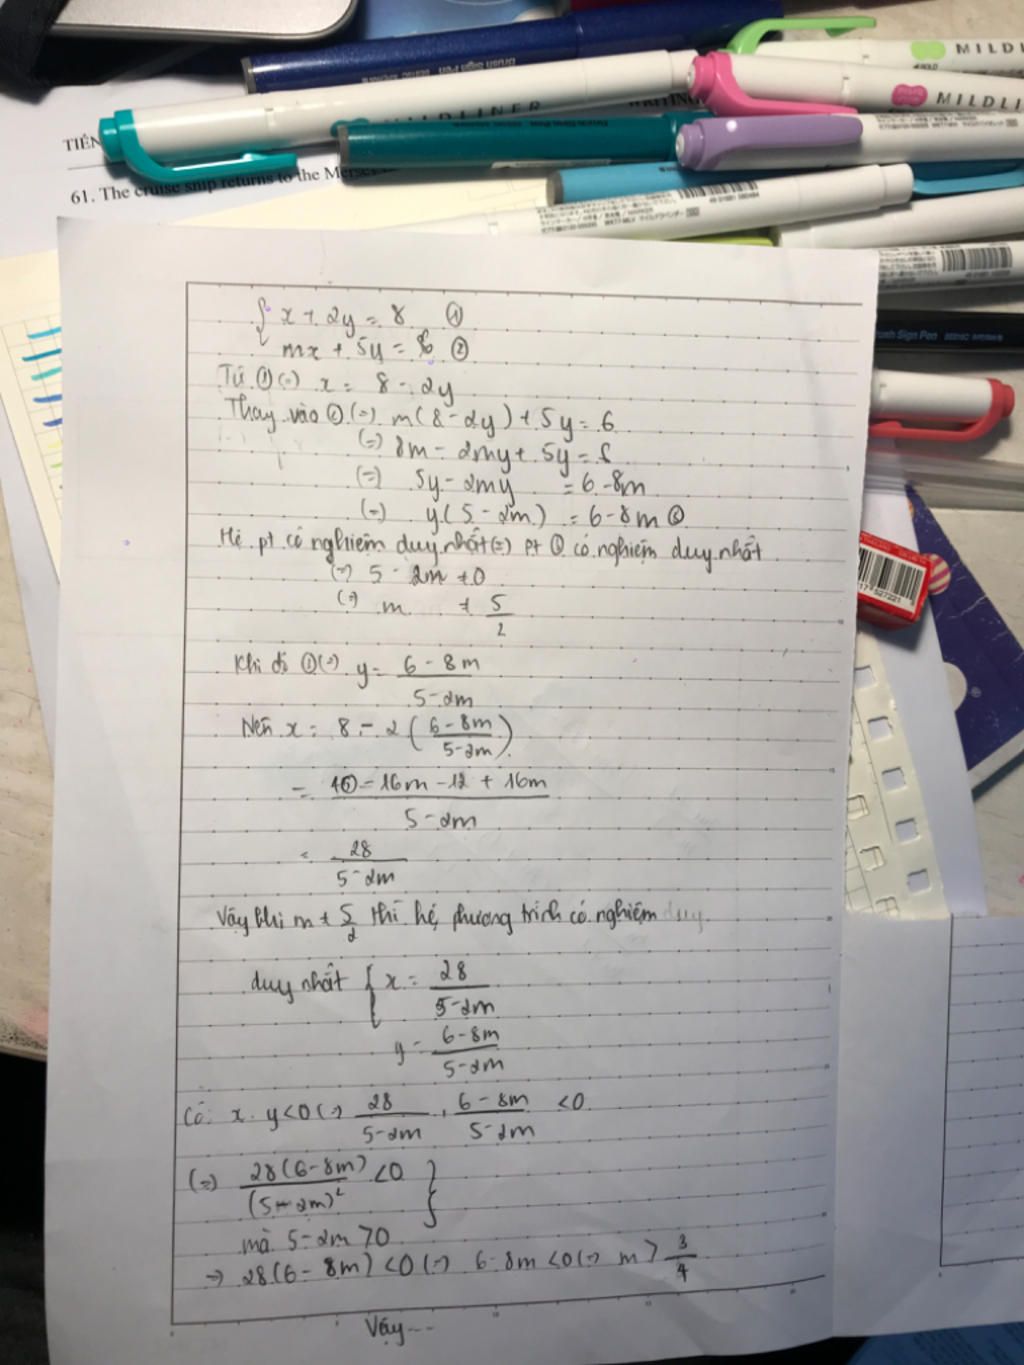 Brush Sign Pen
MILDL
WRITING
MILDLINER
MILDLI
TIẾN
61. The cruise ship returns to the Merse
Brush Sign Pen
{ x + 2y = 8 ①
mx + 5y = 6 ②
Từ ① (=) x = 8 - 2y
Thay vào ② (=) m(8 - 2y) + 5y = 6
(=) 8m - 2my + 5y = 6
(=) 5y - 2my = 6 - 8m
(=) y(5 - 2m) = 6 - 8m ③
Hệ pt có nghiệm duy nhất (=) pt ③ có nghiệm duy nhất
(=) 5 - 2m ≠ 0
(=) m ≠ 5/2
Khi đó ③ (=) y = (6 - 8m)/(5 - 2m)
Nên x = 8 - 2((6 - 8m)/(5 - 2m))
= (40 - 16m - 12 + 16m)/(5 - 2m)
= 28/(5 - 2m)
Vậy khi m ≠ 5/2 thì hệ phương trình có nghiệm duy
duy nhất { x = 28/(5 - 2m)
y = (6 - 8m)/(5 - 2m)
Có: x.y < 0 (=) 28/(5 - 2m) . (6 - 8m)/(5 - 2m) < 0
(=) 28(6 - 8m)/(5 - 2m)² < 0 }
mà 5 - 2m > 0
=> 28(6 - 8m) < 0 (=) 6 - 8m < 0 (=) m > 3/4
Vậy...